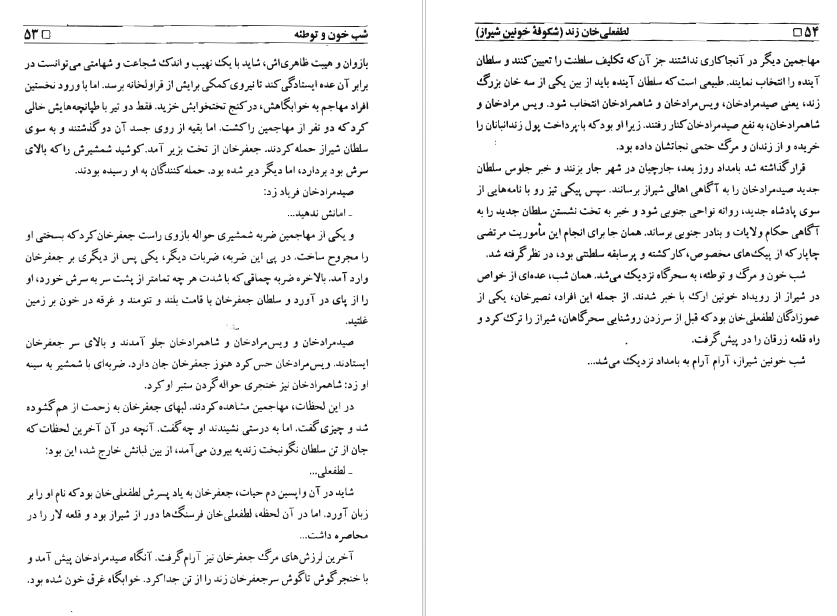 شب خون و توطئه □ ۵۳
بازوان و هیبت ظاهری‌اش، شاید با یک نهیب و اندک شجاعت و شهامتی می‌توانست در
برابر آن عده ایستادگی کند تا نیروی کمکی برایش از قراولخانه برسد. اما با ورود نخستین
افراد مهاجم به خوابگاهش، در کنج تختخوابش خزید. فقط دو تیر با طپانچه‌هایش خالی
کرد که دو نفر از مهاجمین را کشت. اما بقیه از روی جسد آن دو گذشتند و به سوی
سلطان شیراز حمله کردند. جعفرخان از تخت بزیر آمد. کوشید شمشیرش را که بالای
سرش بود بردارد، اما دیگر دیر شده بود. حمله‌کنندگان به او رسیده بودند.
صیدمرادخان فریاد زد:
ـ امانش ندهید...
و یکی از مهاجمین ضربه شمشیری حواله بازوی راست جعفرخان کرد که بسختی او
را مجروح ساخت. در پی این ضربه، ضربات دیگر، یکی پس از دیگری بر جعفرخان
وارد آمد. بالاخره ضربه چماقی که با شدت هر چه تمامتر از پشت سر به سرش خورد، او
را از پای در آورد و سلطان جعفرخان با قامت بلند و تنومند و غرقه در خون بر زمین
غلتید.
صیدمرادخان و ویس‌مرادخان و شاهمرادخان جلو آمدند و بالای سر جعفرخان
ایستادند. ویس‌مرادخان حس کرد هنوز جعفرخان جان دارد. ضربه‌ای با شمشیر به سینه
او زد؛ شاهمرادخان نیز خنجری حواله گردن ستبر او کرد.
در این لحظات، مهاجمین مشاهده کردند. لبهای جعفرخان به زحمت از هم گشوده
شد و چیزی گفت. اما به درستی نشنیدند او چه گفت. آنچه در آن آخرین لحظات که
جان از تن سلطان نگونبخت زندیه بیرون می‌آمد، از بین لبانش خارج شد، این بود:
ـ لطفعلی...
شاید در آن واپسین دم حیات، جعفرخان به یاد پسرش لطفعلی‌خان بود که نام او را بر
زبان آورد. اما در آن لحظه، لطفعلی‌خان فرسنگ‌ها دور از شیراز بود و قلعه لار را در
محاصره داشت...
آخرین لرزش‌های مرگ جعفرخان نیز آرام گرفت. آنگاه صیدمرادخان پیش آمد و
با خنجر گوش تا گوش سر جعفرخان زند را از تن جدا کرد. خوابگاه غرق خون شده بود.
۵۴ □ لطفعلی‌خان زند (شکوفهٔ خونین شیراز)
مهاجمین دیگر در آنجا کاری نداشتند جز آن که تکلیف سلطنت را تعیین کنند و سلطان
آینده را انتخاب نمایند. طبیعی است که سلطان آینده باید از بین یکی از سه خان بزرگ
زند، یعنی صیدمرادخان، ویس‌مرادخان و شاهمرادخان انتخاب شود. ویس مرادخان و
شاهمرادخان، به نفع صیدمرادخان کنار رفتند. زیرا او بود که با پرداخت پول زندانبانان را
خریده و از زندان و مرگ حتمی نجاتشان داده بود.
قرار گذاشته شد بامداد روز بعد، جارچیان در شهر جار بزنند و خبر جلوس سلطان
جدید صیدمرادخان را به آگاهی اهالی شیراز برسانند. سپس پیکی تیز رو با نامه‌هایی از
سوی پادشاه جدید، روانه نواحی جنوبی شود و خبر به تخت نشستن سلطان جدید را به
آگاهی حکام ولایات و بنادر جنوبی برساند. همان جا برای انجام این مأموریت مرتضی
چاپار که از پیک‌های مخصوص، کار کشته و پرسابقه سلطنتی بود، در نظر گرفته شد.
شب خون و مرگ و توطئه، به سحرگاه نزدیک می‌شد. همان شب، عده‌ای از خواص
در شیراز از رویداد خونین ارک با خبر شدند. از جمله این افراد، نصیرخان، یکی از
عموزادگان لطفعلی‌خان بود که قبل از سرزدن روشنایی سحرگاهان، شیراز را ترک کرد و
راه قلعه زرقان را در پیش گرفت.
شب خونین شیراز، آرام آرام به بامداد نزدیک می‌شد...